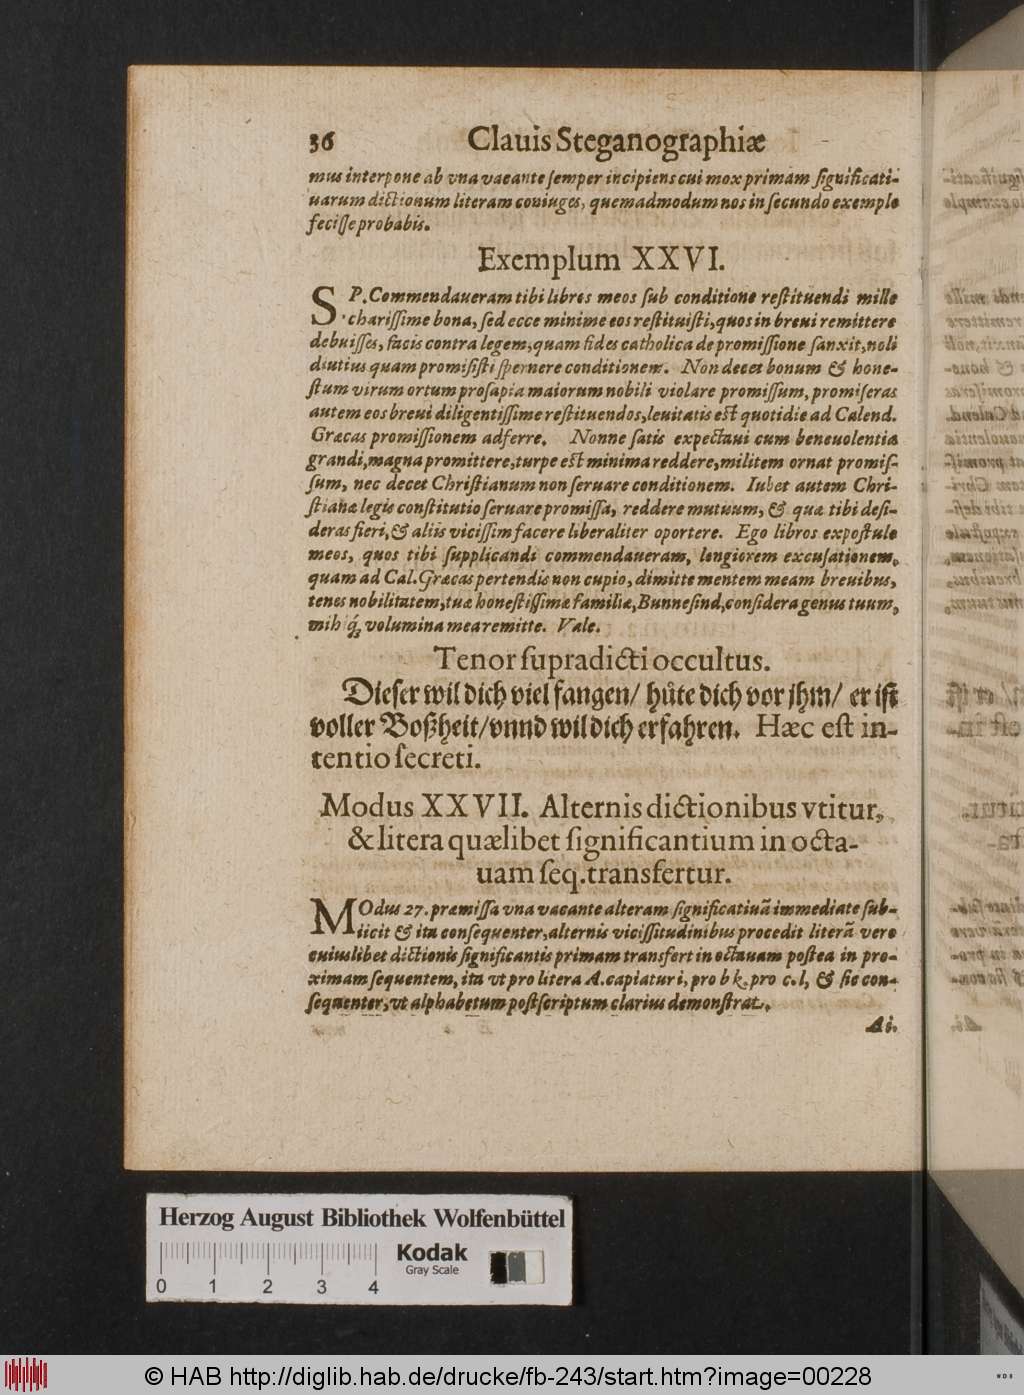 36 Clauis Steganographiæ
mus interpone ab vna vacante semper incipiens cui mox primam significati-
uarum dictionum literam coniuges, quemadmodum nos in secundo exemplo
fecisse probabis.
Exemplum XXVI.
SP. Commendaueram tibi libros meos sub conditione restituendi mille
charissime bona, sed ecce minime eos restituisti, quos in breui remittere
debuisses, facis contra legem, quam fides catholica de promissione sanxit, noli
diutius quam promisisti spernere conditionem. Non decet bonum & hone-
stum virum ortum prosapia maiorum nobili violare promissum, promiseras
autem eos breui diligentissime restituendos, leuitatis est quotidie ad Calend.
Græcas promissionem adferre. Nonne satis expectaui cum beneuolentia
grandi, magna promittere, turpe est minima reddere, militem ornat promis-
sum, nec decet Christianum non seruare conditionem. Iubet autem Chri-
stianæ legis constitutio seruare promissa, reddere mutuum, & quæ tibi desi-
deras fieri, & aliis vicissim facere liberaliter oportere. Ego libros expostulo
meos, quos tibi supplicandi commendaueram, longiorem excusationem,
quam ad Cal. Græcas pertendis non cupio, dimitte mentem meam breuibus,
tenes nobilitatem, tuæ honestissimæ familiæ, Bunnesind, considera genus tuum,
mihi q́; volumina mea remitte. Vale.
Tenor supradicti occultus.
Dieser wil dich viel fangen/ hůte dich vor jhm/ er ist
voller Boßheit/ vnnd wil dich erfahren. Hæc est in-
tentio secreti.
Modus XXVII. Alternis dictionibus vtitur,
& litera quælibet significantium in octa-
uam seq. transfertur.
MOdus 27. præmissa vna vacante alteram significatiuã immediate sub-
iicit & ita consequenter, alternis vicissitudinibus procedit literã vero
cuiuslibet dictionis significantis primam transfert in octauam postea in pro-
ximam sequentem, ita vt pro litera A. capiatur i, pro b k. pro c. l, & sic con-
sequenter, vt alphabetum postscriptum clarius demonstrat.
Ai.
Herzog August Bibliothek Wolfenbüttel
Kodak
Gray Scale
0 1 2 3 4
© HAB http://diglib.hab.de/drucke/fb-243/start.htm?image=00228